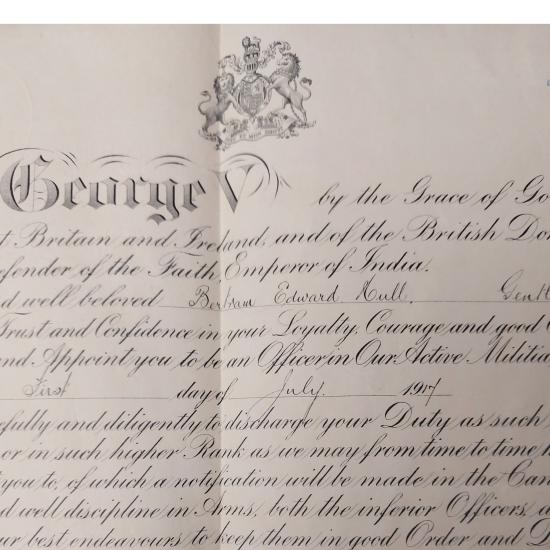 George V by the Grace of Go
t Britain and Ireland, and of the British Do
efender of the Faith, Emperor of India.
d well beloved Bertram Edward Hull. Gentl
Trust and Confidence in your Loyalty, Courage and good
nd Appoint you to be an Officer in Our Active Militia
First day of July. 1917
efully and diligently to discharge your Duty as such
or in such higher Rank as we may from time to time
t you to, of which a notification will be made in the Can
d well discipline in Arms, both the inferior Officers a
ur best endeavours to keep them in good Order and D